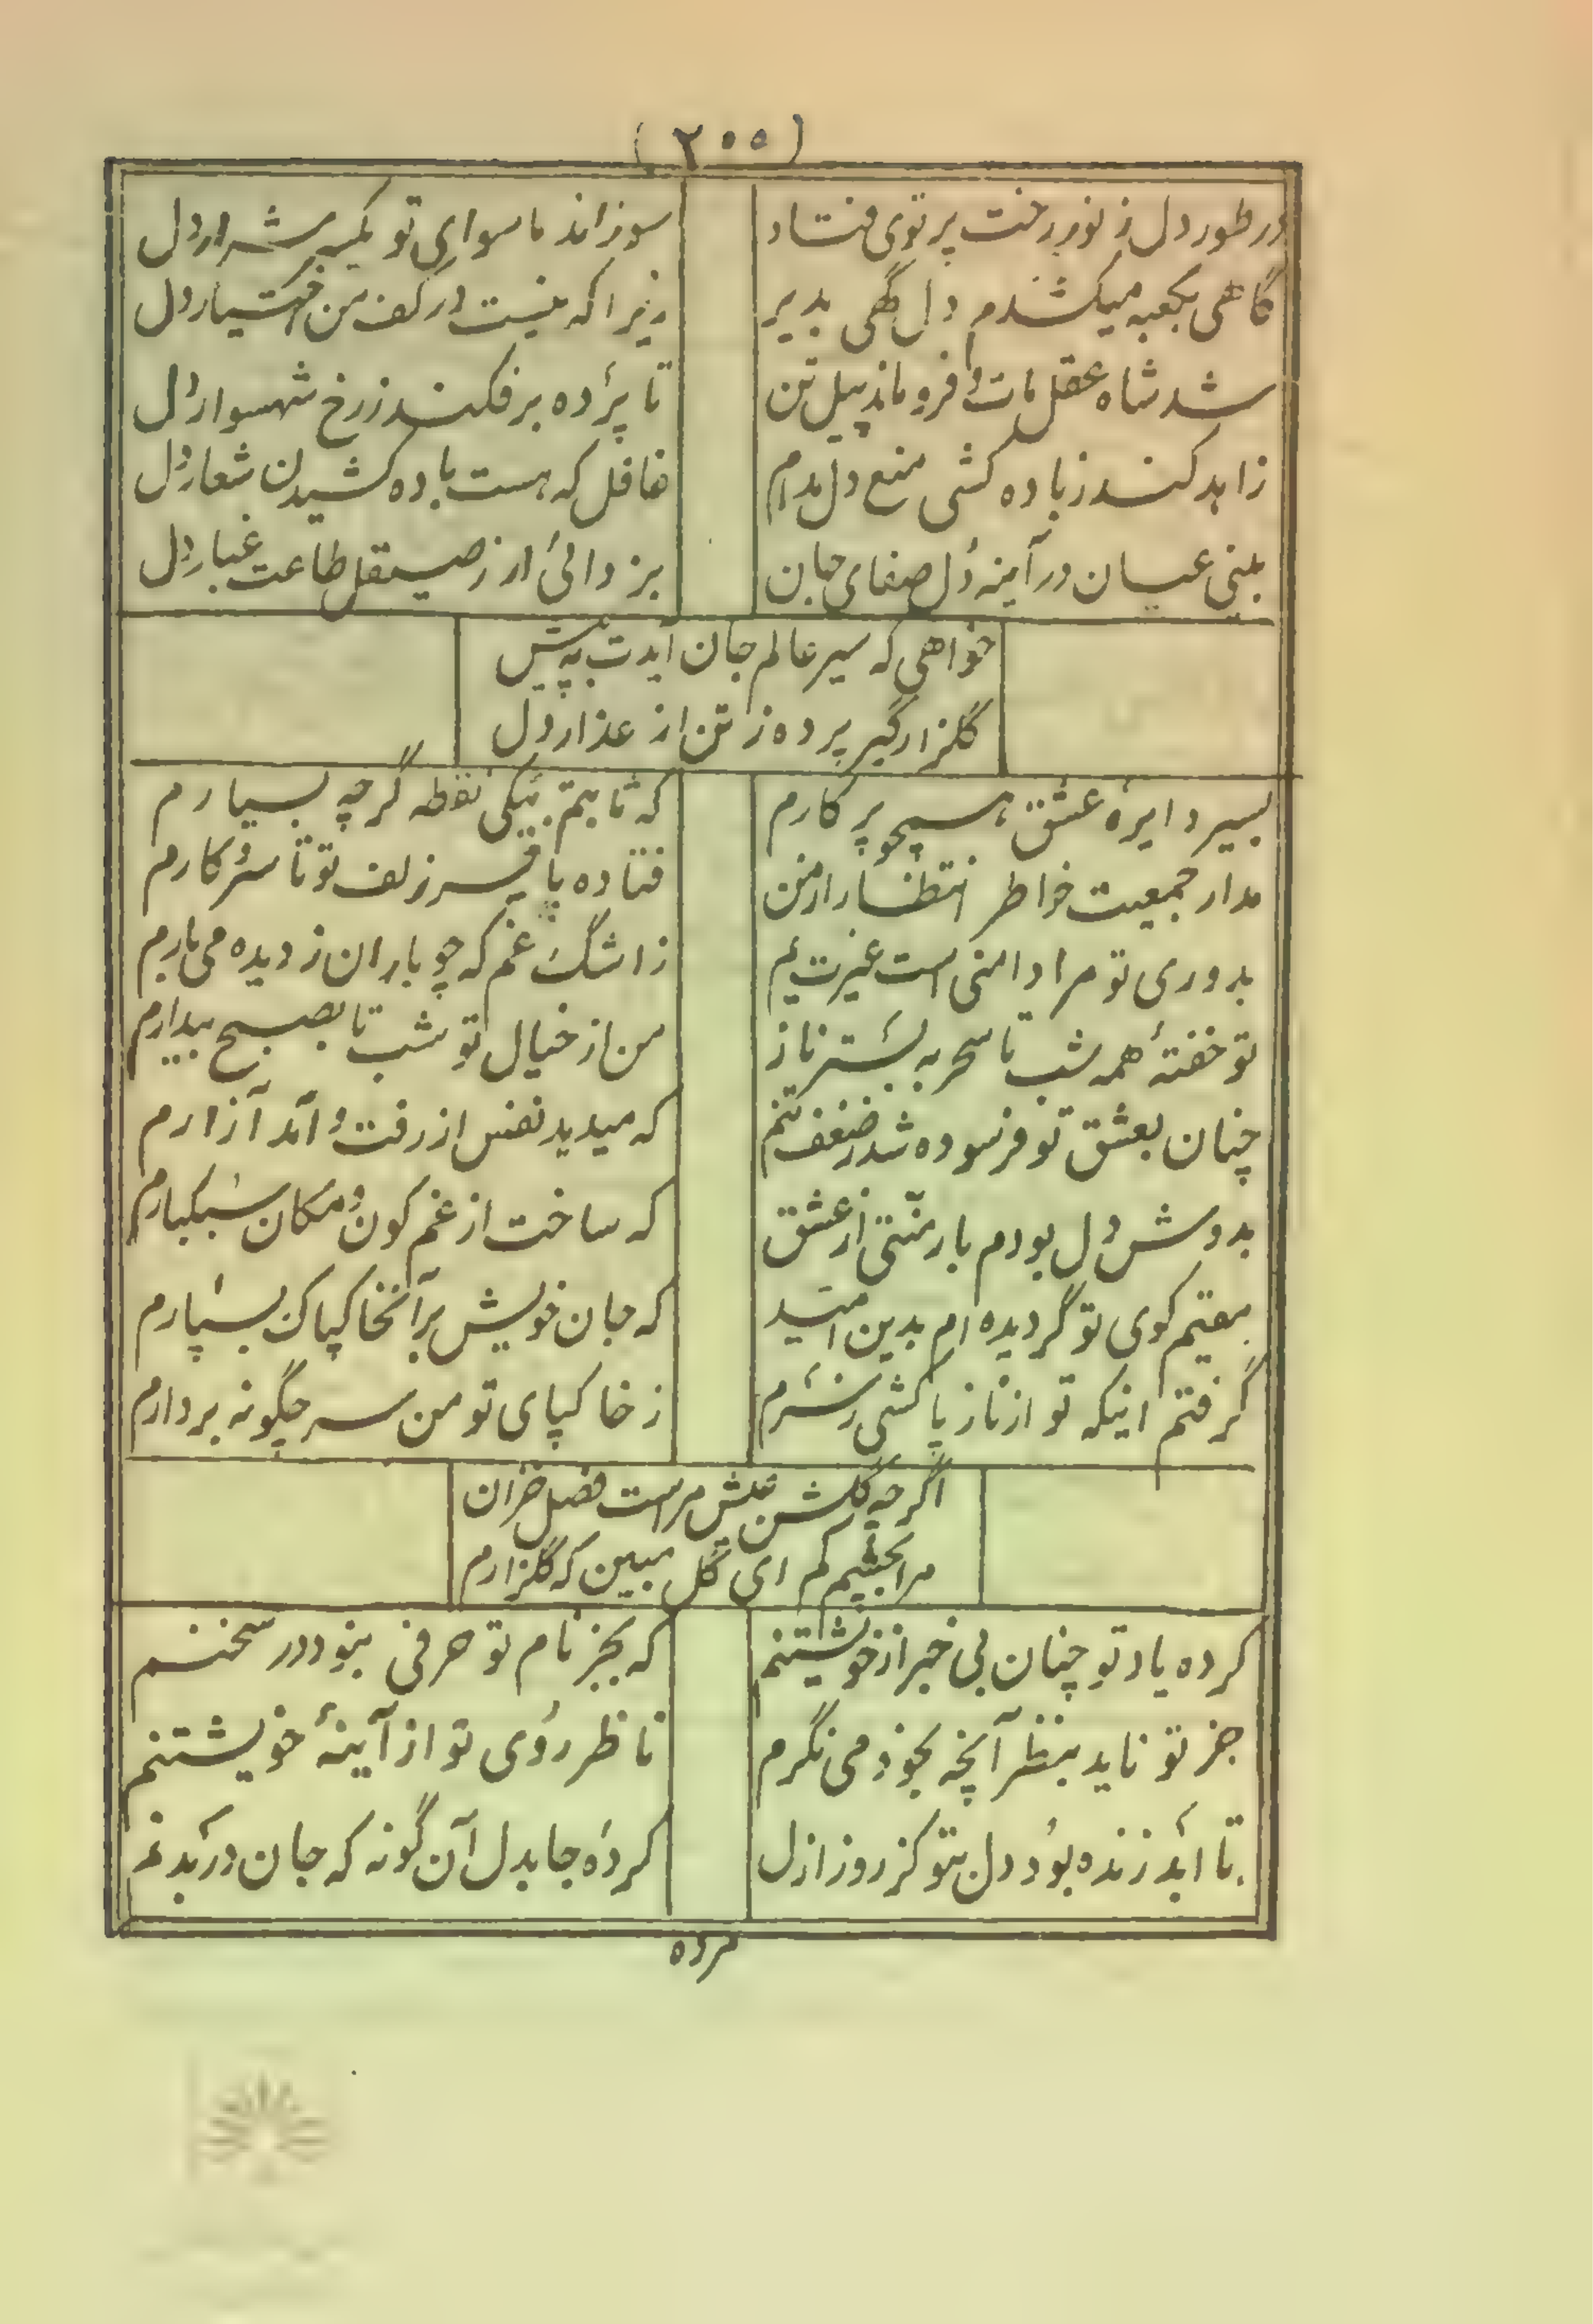 (۲۰۰)
در طور دل ز نور رخت پرتوی فتاد
سوزاند ما سوای تو یکسر شرار دل
گاهی بکعبه میکشدم دل گهی بدیر
زیرا که نیست در کف من اختیار دل
شد شاه عقل مات و فرو ماند پیل تن
تا پرده برفکند ز رخ شهسوار دل
زاهد کند ز باده کشی منع دل مدام
غافل که هست باده کشیدن شعار دل
بینی عیان در آینه دل صفای جان
بزدائی ار ز صیقل طاعت غبار دل
خواهی که سیر عالم جان آیدت به پیش
گلزار گیر پرده ز تن از عذار دل
بسیر دایره عشق همچو پرکارم
که ثابتم بیکی نقطه گرچه بسیارم
مدار جمعیت خاطر انتظار از من
فتاده با سر زلف تو تا سر و کارم
بدوری تو مرا دامنی است غیرت یم
ز اشک غم که چو باران ز دیده می بارم
تو خفتهٔ همه شب تا سحر به بستر ناز
من از خیال تو شب تا بصبح بیدارم
چنان بعشق تو فرسوده شد ز ضعف تنم
که میدید نفس از رفت و آمد آزارم
بدوش دل بودم بار منتی از عشق
که ساخت از غم کون و مکان سبکبارم
مقیم کوی تو گردیده ام بدین امید
که جان خویش بر آن خاکپاک بسپارم
گرفتم اینکه تو از ناز پا کشی ز سرم
ز خاکپای تو من سر چگونه بردارم
اگرچه گلشن عیش مراست فصل خزان
مرا بچشم کم ای گل مبین که گلزارم
کرده یاد تو چنان بی خبر از خویشتنم
که بجز نام تو حرفی نبود در سخنم
جز تو ناید بنظر آنچه بخود می نگرم
ناظر روی تو از آینهٔ خویشتنم
تا ابد زنده بود دل بتو کز روز ازل
کرده جا بدل آن گونه که جان در بدنم
مرده